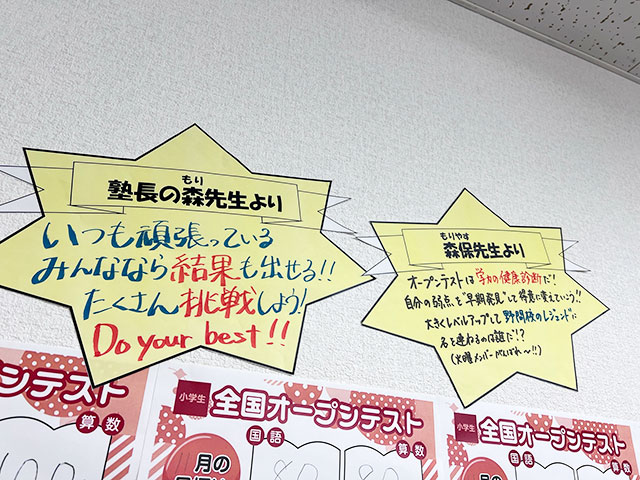 もり
塾長の森先生より
いつも頑張っている
みんななら結果も出せる!!
たくさん挑戦しよう!
Do your best!!
もりやす
森保先生より
オープンテストは学力の健康診断だ!
自分の弱点を"早期発見"して得意に変えていこう!!
大きくレベルアップして野間校のレジェンドに
名を連ねるのは誰だ!?
(火曜メンバーがんばれ〜!!)
全国オープンテスト
算数
小学生
全国オープンテスト
国語
算数
月の
小学生
全国オープンテスト
国語
算数
月の